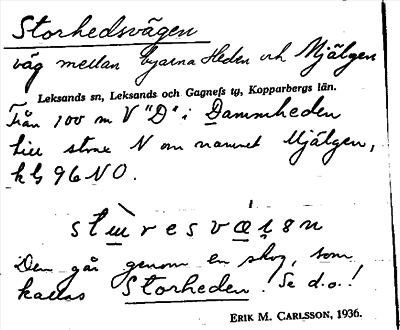 Storhedsvägen
väg mellan byarna Heden och Mjälgen
Leksands sn, Leksands och Gagnefs tg, Kopparbergs län.
Från 100 m V "D" i Dammheden
till strax N om namnet Mjälgen,
kbl 96 NO.
Den går genom en skog, som
kallas Storheden. Se d.o.!
ERIK M. CARLSSON, 1936.